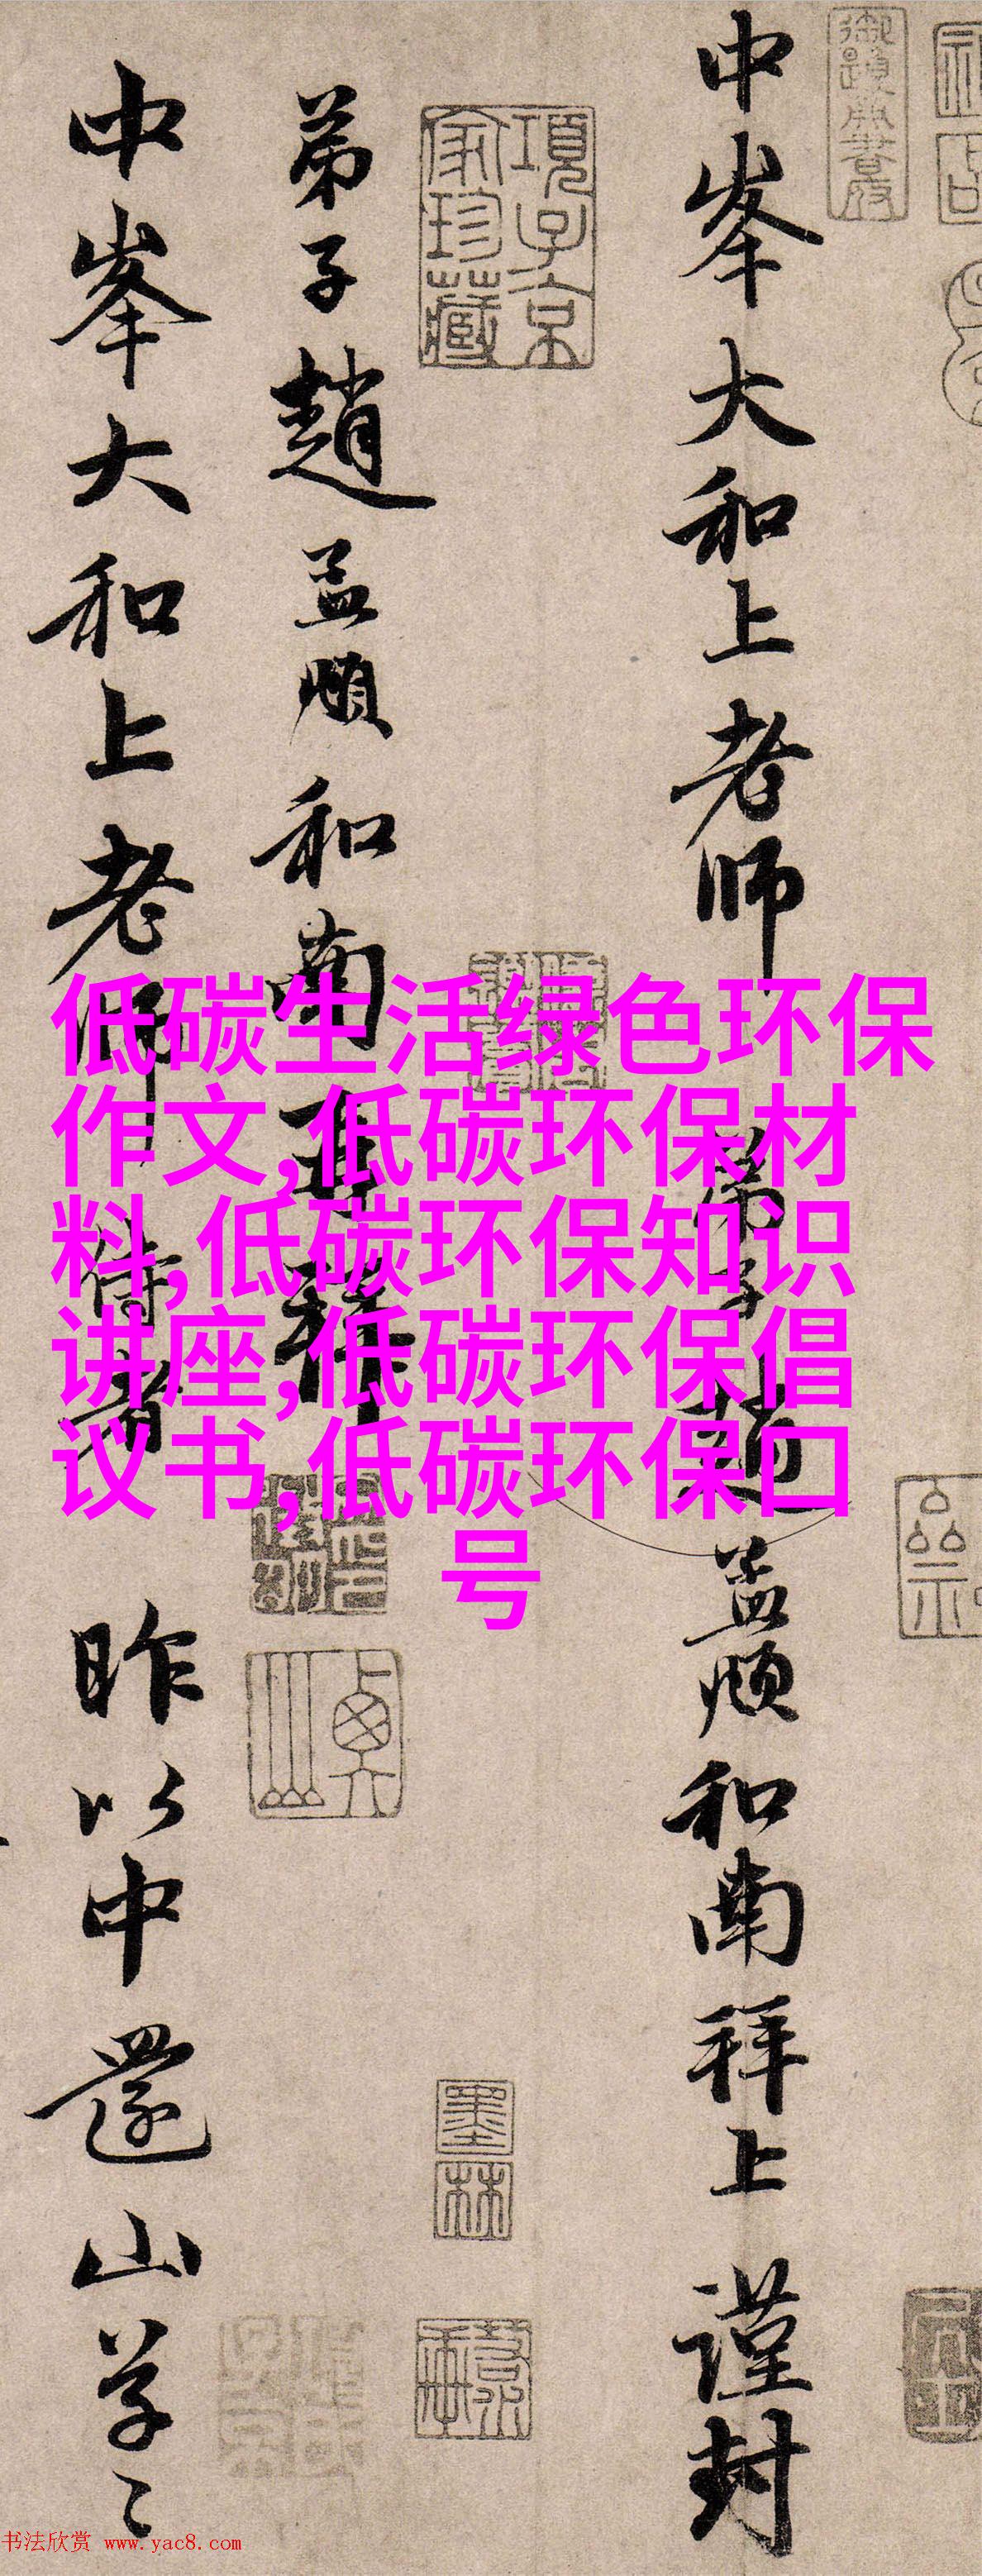 中峯大和上老师 弟子趙孟頫和南拜上 謹封
項子京
家珍藏
弟子趙孟頫和南再拜
中峯大和上老师 侍者 昨以中還山草々
墨
林
低碳生活绿色环保
作文,低碳环保材
料,低碳环保知识
讲座,低碳环保倡
议书,低碳环保口
号
书法欣赏 www.yac8.com